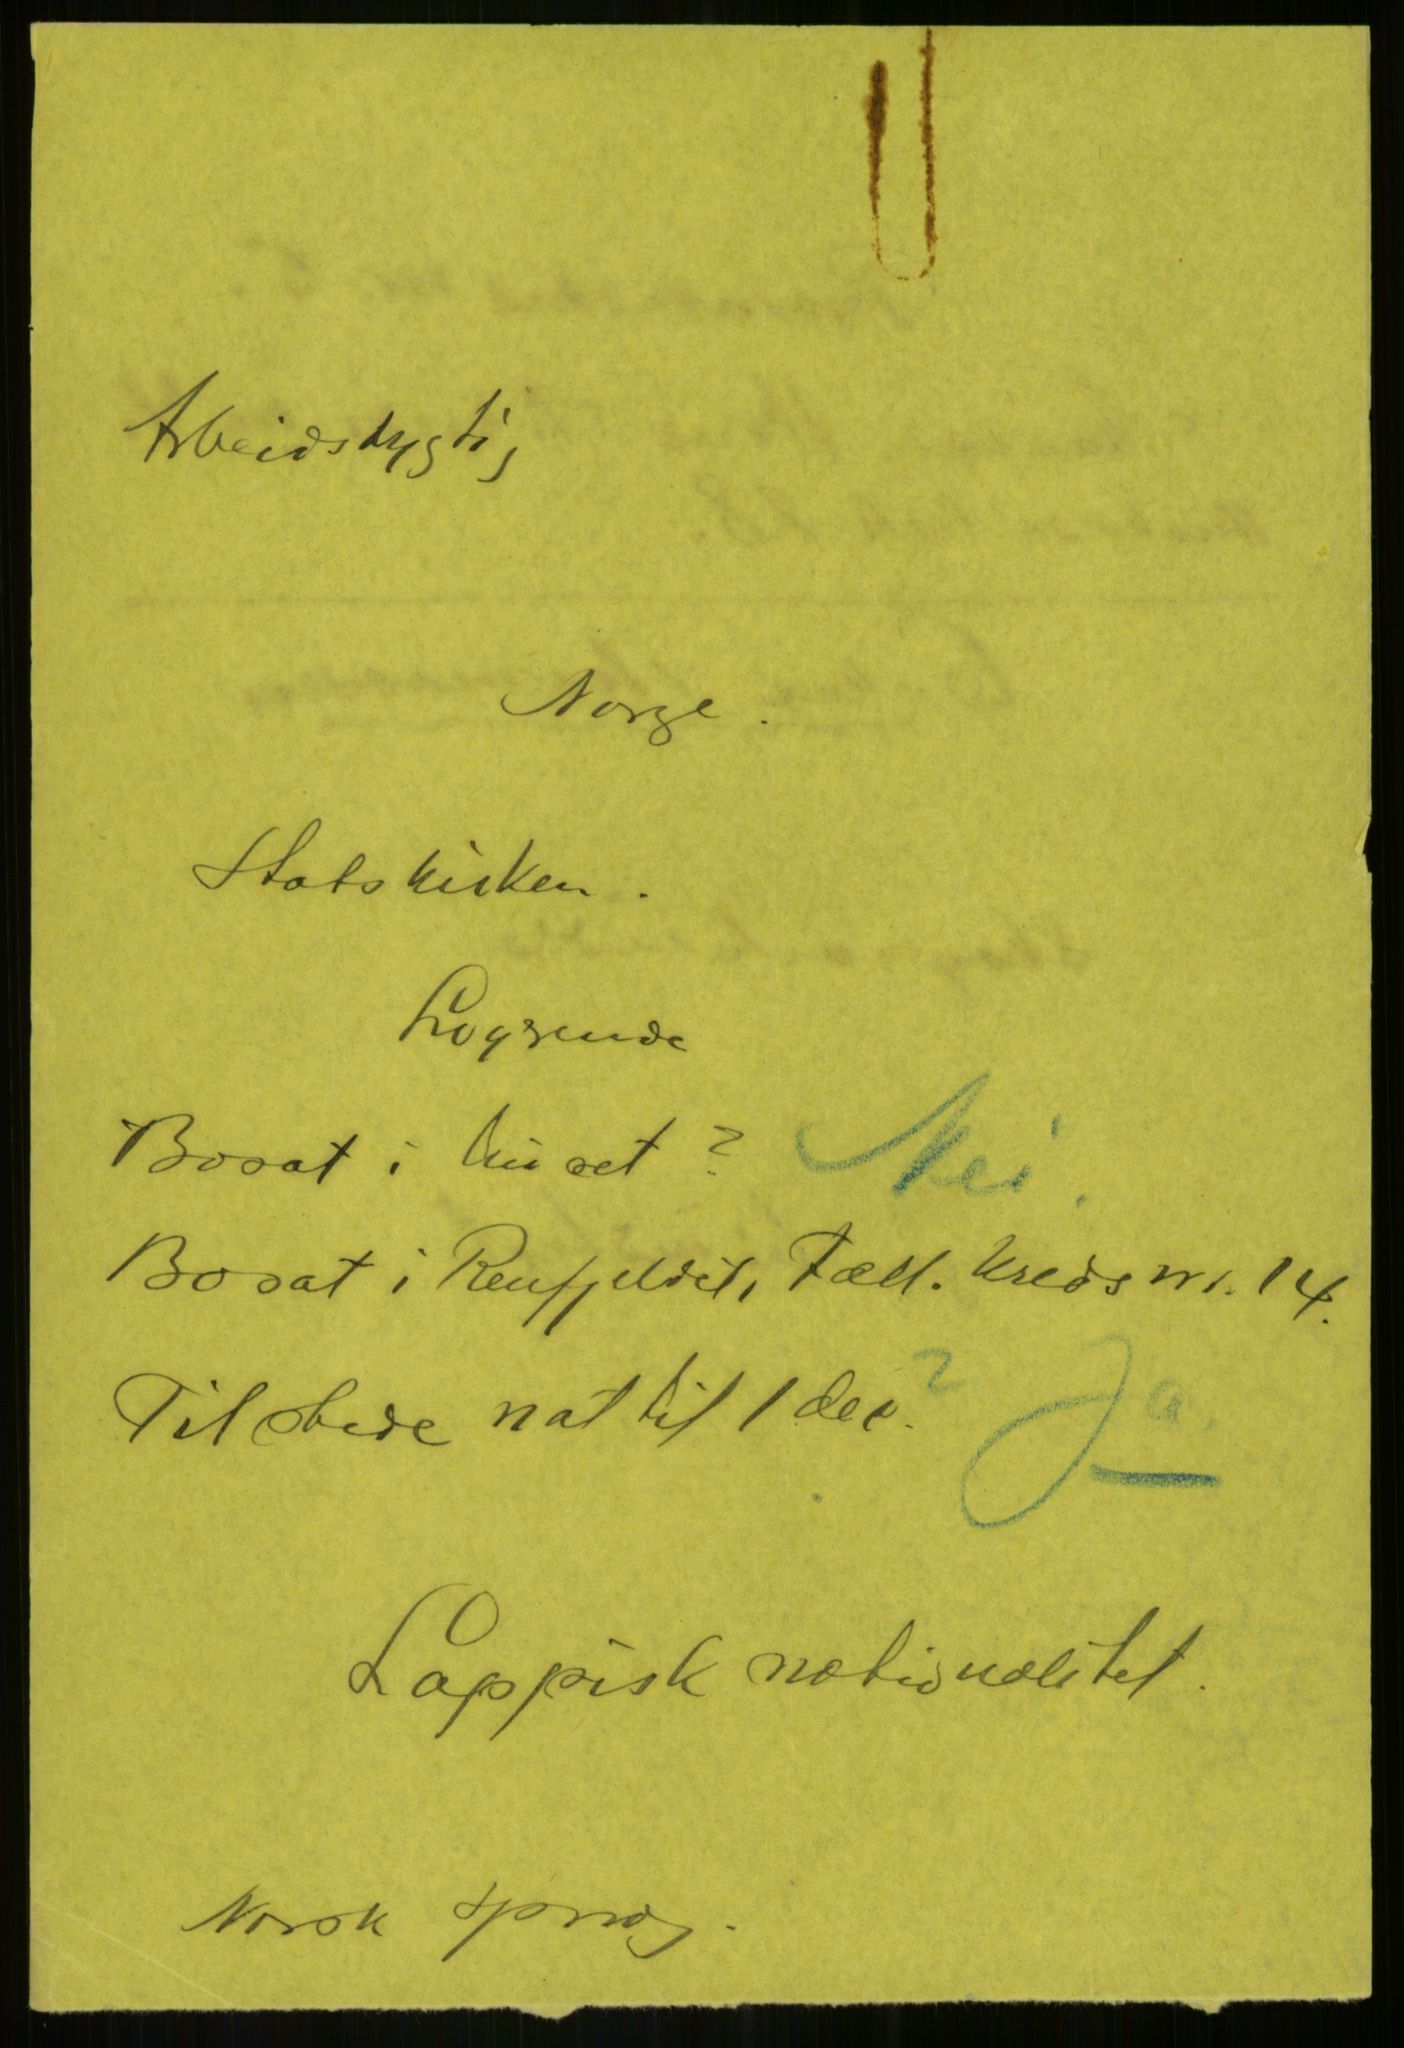 Arbeidsdygtig
Norge.
Statskirken.
Logerende
Bosat i huset? Nei.
Bosat i Renfjeldet, Tæll. kreds nr. 14.
Tilstede nat til 1 dec.? Ja.
Lappisk nationalitet.
Norsk sprog.